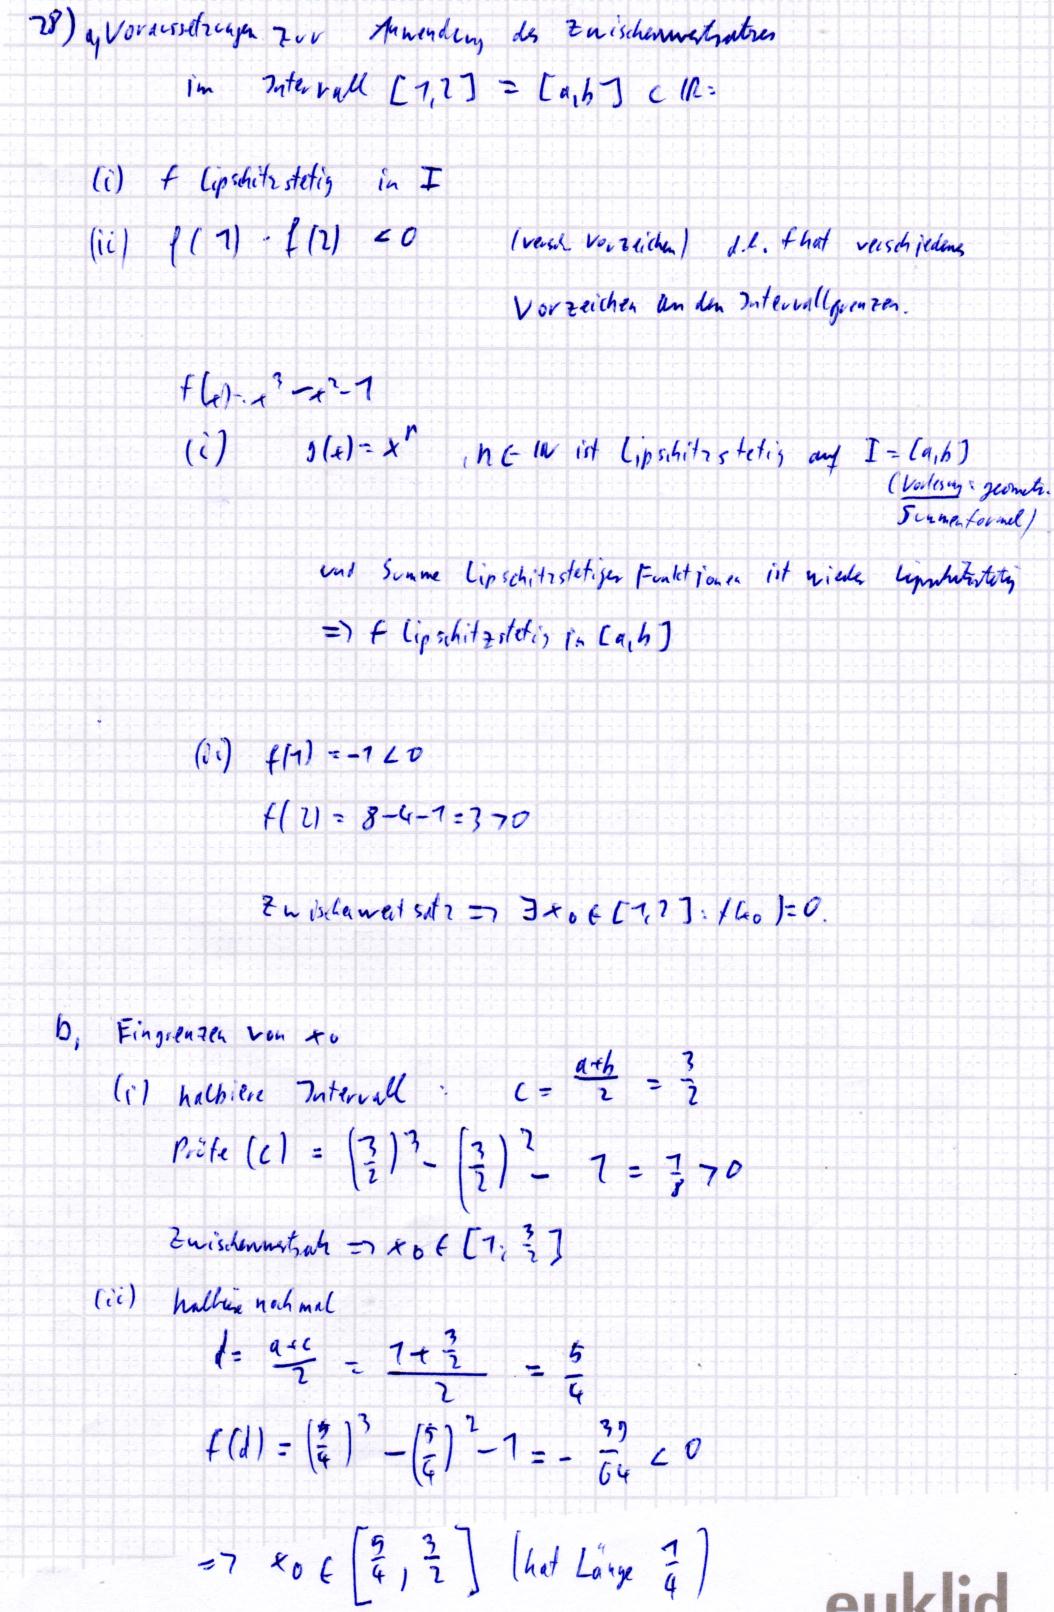 28) a, Voraussetzungen zur Anwendung des Zwischenwertsatzes
im Intervall [1,2] = [a,b] ⊂ ℝ:
(i) f Lipschitzstetig in I
(ii) f(1) · f(2) < 0 (versch. Vorzeichen) d.h. f hat verschiedene
Vorzeichen an den Intervallgrenzen.
f(x) = x³ - x² - 1
(i) g(x) = xⁿ, n ∈ ℕ ist Lipschitzstetig auf I = [a,b]
(Vorlesung: geometr.
Summenformel)
und Summe Lipschitzstetiger Funktionen ist wieder Lipschitzstetig
=> f Lipschitzstetig in [a,b]
(ii) f(1) = -1 < 0
f(2) = 8-4-1 = 3 > 0
Zwischenwertsatz => ∃ x₀ ∈ [1,2] : f(x₀) = 0.
b, Eingrenzen von x₀
(i) halbiere Intervall : c = (a+b)/2 = 3/2
Prüfe (c) = (3/2)³ - (3/2)² - 1 = 1/8 > 0
Zwischenwertsatz => x₀ ∈ [1; 3/2]
(ii) halbiere nochmal
d = (a+c)/2 = (1 + 3/2)/2 = 5/4
f(d) = (5/4)³ - (5/4)² - 1 = - 39/64 < 0
=> x₀ ∈ [5/4, 3/2] (hat Länge 1/4)
euklid